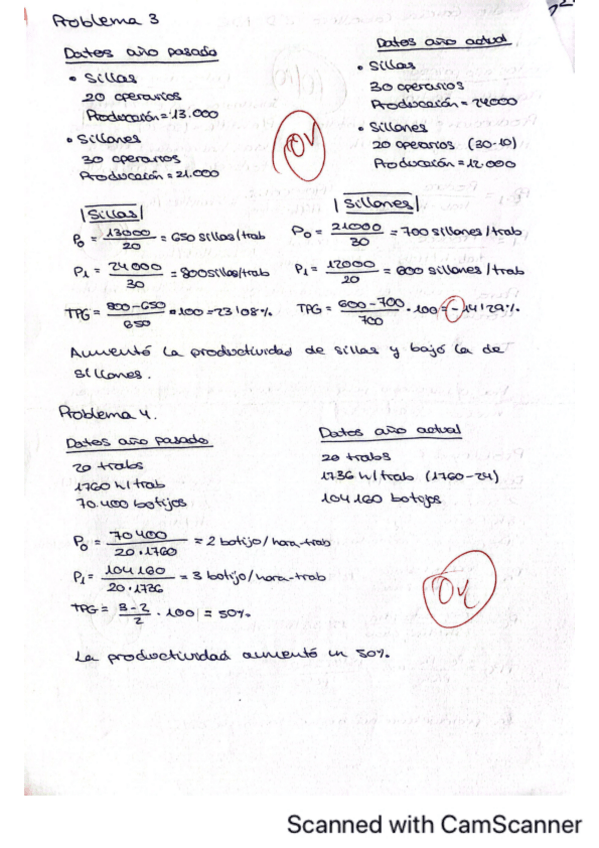 Problema 3
Datos año pasado
• Sillas
20 operarios
Producción = 13.000
• Sillones
30 operarios
Producción = 21.000
Datos año actual
• Sillas
30 operarios
Producción = 24000
• Sillones
20 operarios (30-10)
Producción = 12.000
OK
|Sillas|
P₀ = 13000/20 = 650 sillas/trab
P₁ = 24000/30 = 800 sillas/trab
TPG = 800-650/650 • 100 = 23'08%
|Sillones|
P₀ = 21000/30 = 700 sillones/trab
P₁ = 12000/20 = 600 sillones/trab
TPG = 600-700/700 • 100 = -14'29%
Aumentó la productividad de sillas y bajó la de
sillones.
Problema 4.
Datos año pasado
20 trabs
1760 h/trab
70.400 botijos
Datos año actual
20 trabs
1736 h/trab (1760-24)
104160 botijos
P₀ = 70400/20•1760 = 2 botijo/hora-trab
P₁ = 104160/20•1736 = 3 botijo/hora-trab
TPG = 3-2/2 • 100 = 50%
OK
La productividad aumentó un 50%.
Scanned with CamScanner